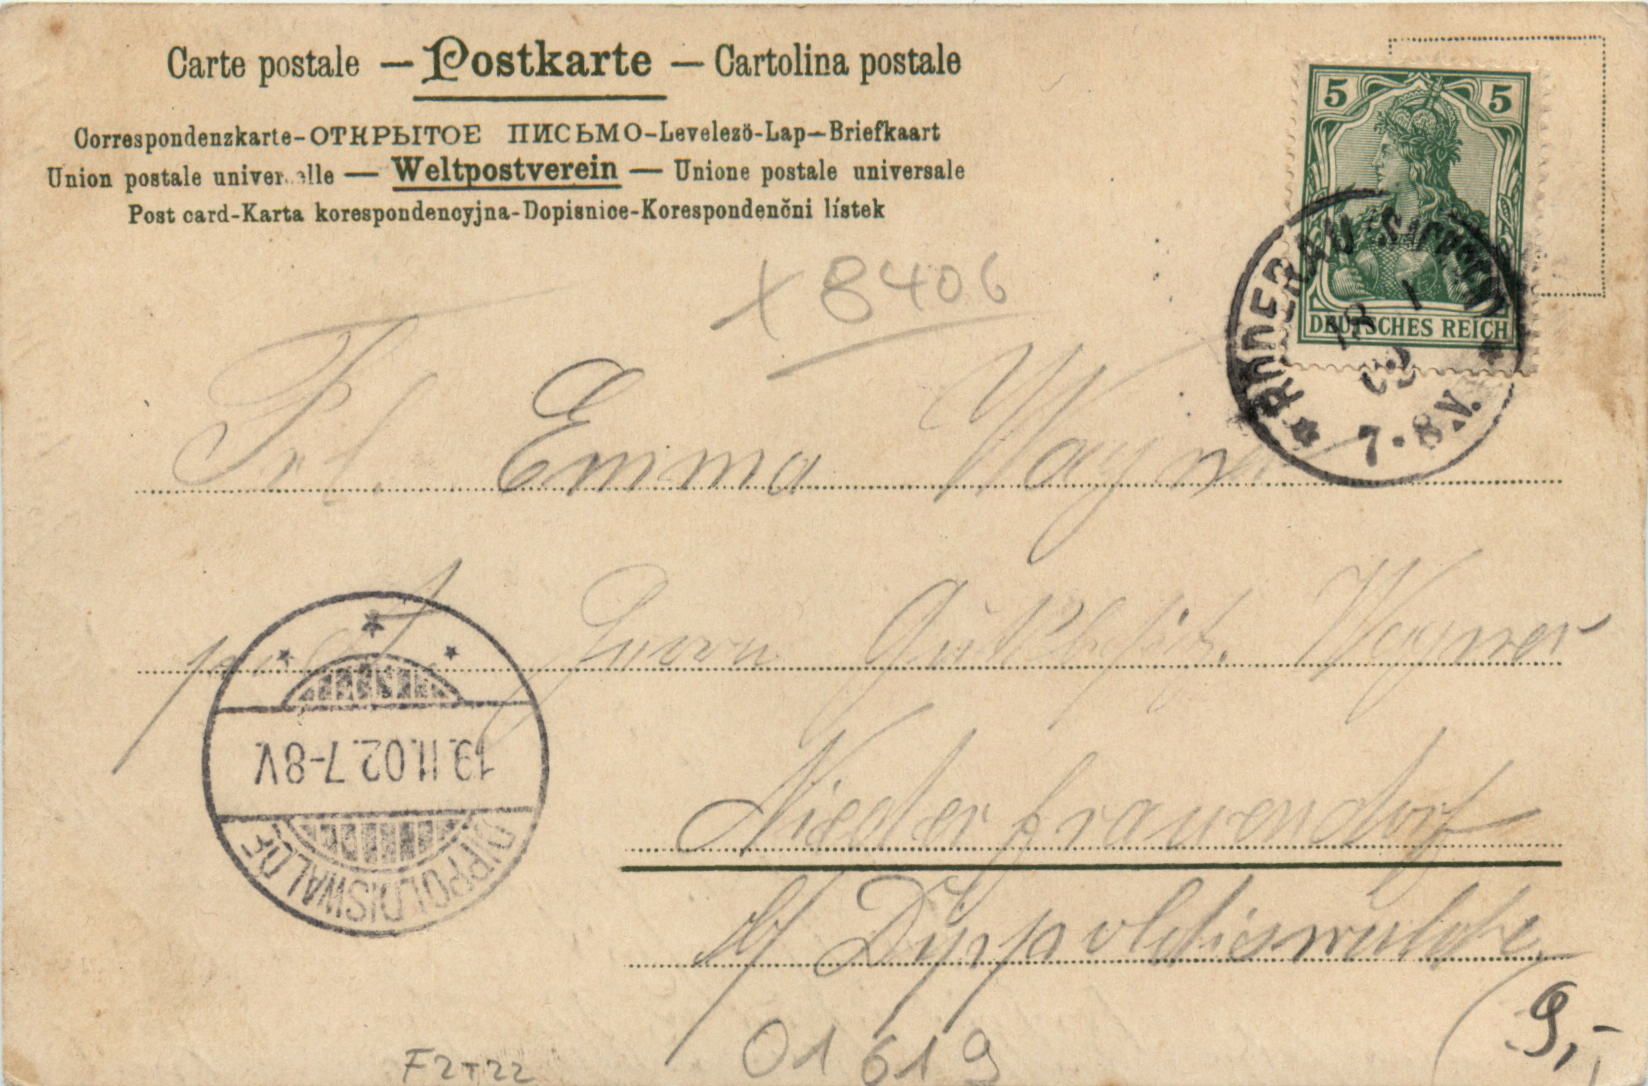 Carte postale — Postkarte — Cartolina postale
Correspondenzkarte-ОТКРЫТОЕ ПИСЬМО-Levelezö-Lap-Briefkaart
Union postale univer elle — Weltpostverein — Unione postale universale
Post card-Karta korespondencyjna-Dopisnice-Korespondenčni lístek
5 5
DEUTSCHES REICH
RÖDERAU (SACHSEN)
18 1
02
7-8V.
x 8406
Frl. Emma Wagner
Herrn Gutsbesitz. Wagner
19.11.02.7-8V.
DIPPOLDISWALDE
Niederfrauendorf
b/ Dippoldiswalde.
9,-
01619
F2T22